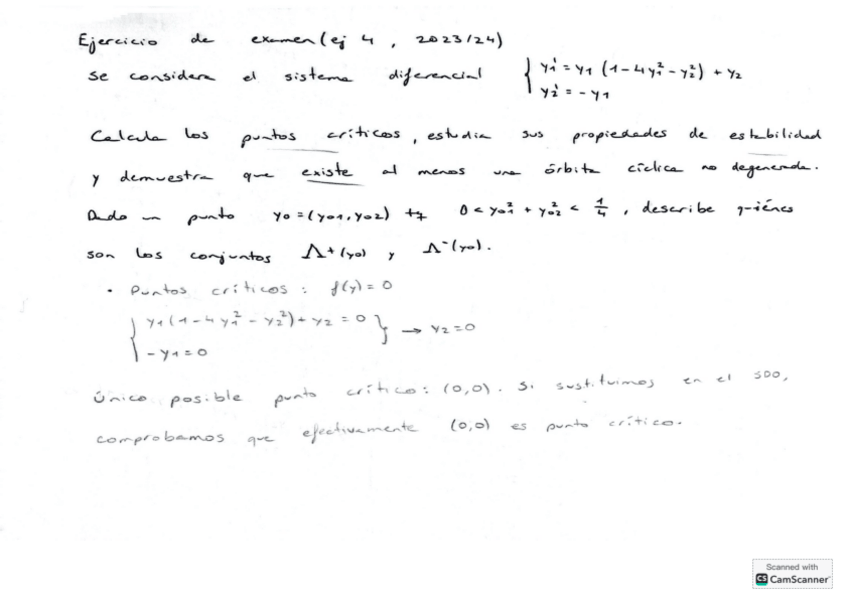 Ejercicio de examen (ej 4, 2023/24)
se considera el sistema diferencial { y₁' = y₁ (1 - 4y₁² - y₂²) + y₂
y₂' = - y₁
Calcula los puntos críticos, estudia sus propiedades de estabilidad
y demuestra que existe al menos una órbita cíclica no degenerada.
Dado un punto y₀ = (y₀₁, y₀₂) tq 0 < y₀₁² + y₀₂² < 1/4, describe quiénes
son los conjuntos Λ⁺(y₀) y Λ⁻(y₀).
• Puntos críticos: f(y) = 0
{ y₁ (1 - 4y₁² - y₂²) + y₂ = 0 } → y₂ = 0
- y₁ = 0
Único posible punto crítico: (0,0). Si sustituimos en el SDO,
comprobamos que efectivamente (0,0) es punto crítico.
Scanned with
CS CamScanner